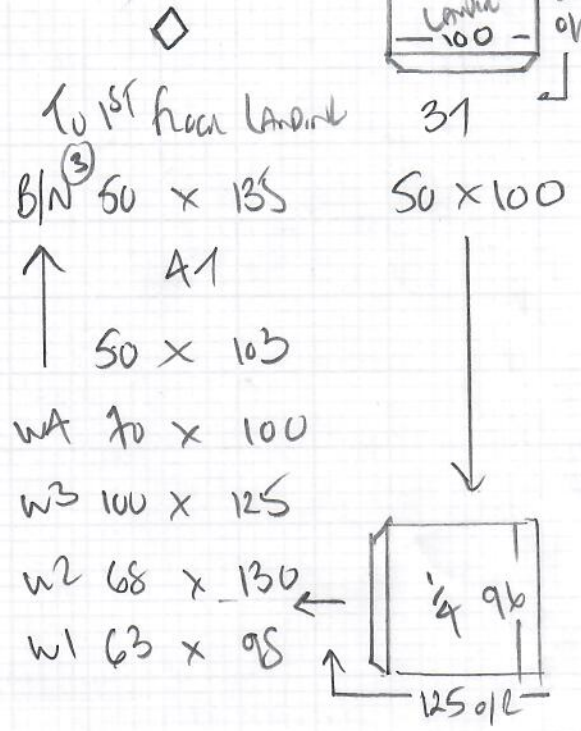 LANDIN
100
To 1ST floor LANDING 31
B/N ③ 50 x 135 50 x 100
41
50 x 103
W4 70 x 100
W3 100 x 125
W2 68 x 130
W1 63 x 98
1/4 96
125 o/R